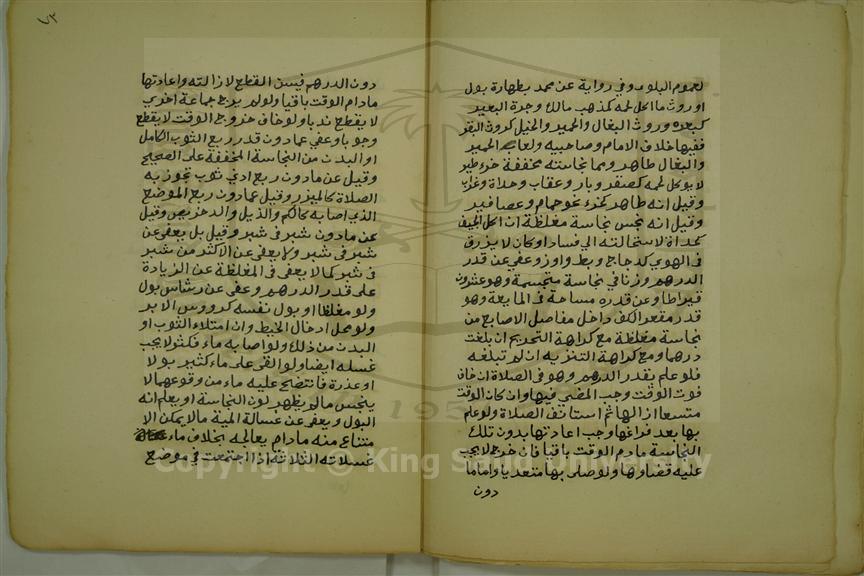 ٧٣
لعموم البلوى وفي رواية عن محمد بطهارة بول
او روث ما اكل لحمه كمذهب مالك وجرة البعير
كبعره وروث البغال والحمير والخيل كروث البقر
ففيها خلاف الامام وصاحبيه ولعاب الحمير
والبغال طاهر ومما نجاسته مخففة خرء طير
لا يوكل لحمه كصقر وباز وعقاب وحداة وغراب
وقيل انه طاهر كخرء نحو حمام وعصافير
وقيل انه نجس نجاسة مغلظة ان اكل الجيف
كحداة لاستحالته الي فساد او كان لا يزرق
في الهوي كدجاج وبط واوز وعفي عن قدر
الدرهم وزنا في نجاسة متجسمة وهو عشرون
قيراطا وعن قدره مساحة في المايعة وهو
قدر مقعر الكف داخل مفاصل الاصابع من
نجاسة مغلظة مع كراهة التحريم ان بلغت
درهما ومع كراهة التنزيه ان لم تبلغه
فلو علم بقدر الدرهم وهو في الصلاة ان خاف
فوت الوقت وجب المضي فيها وان كان الوقت
متسعا ازالها ثم استانف الصلاة ولو علم
بها بعد فراغها وجب اعادتها بدون تلك
النجاسة مادم الوقت باقيا فان خرج لا يجب
عليه قضاوها ولو صلى بها متعديا واما ما
دون
دون الدرهم فيسن القطع لازالته واعادتها
مادام الوقت باقيا ولو لم يرج جماعة اخري
لا يقطع ندبا ولو خاف خروج الوقت لا يقطع
وجوبا وعفي عما دون قدر ربع الثوب الكامل
او البدن من النجاسة المخففة على الصحيح
وقيل عن مادون ربع ادني ثوب تجوز به
الصلاة كالميزر وقيل عما دون ربع الموضع
الذي اصابه كالكم والذيل والدخريص وقيل
عن مادون شبر في شبر وقيل بل يعفي عن
شبر في شبر ولا يعفي عن الاكثر من شبر
في شبر كما لا يعفي في المغلظة عن الزيادة
على قدر الدرهم وعفي عن رشاش بول
ولو مغلظا او بول نفسه كرووس الابر
ولو محل ادخال الخيط وان امتلاء الثوب او
البدن من ذلك ولو اصابه ماء فكثر لا يجب
غسله ايضا ولو القي على ماء كثير بولا
او عذرة فانتضح عليه ماء من وقوعهما لا
ينجس مالم يظهر لون النجاسة او يعلم انه
البول ويعفي عن غسالة الميت مالا يمكن الا
متناع منه مادام يعالجه بخلاف ماء
غسلاته الثلاثة اذا اجتمعت في موضع
Copyright © King Saud University
1957